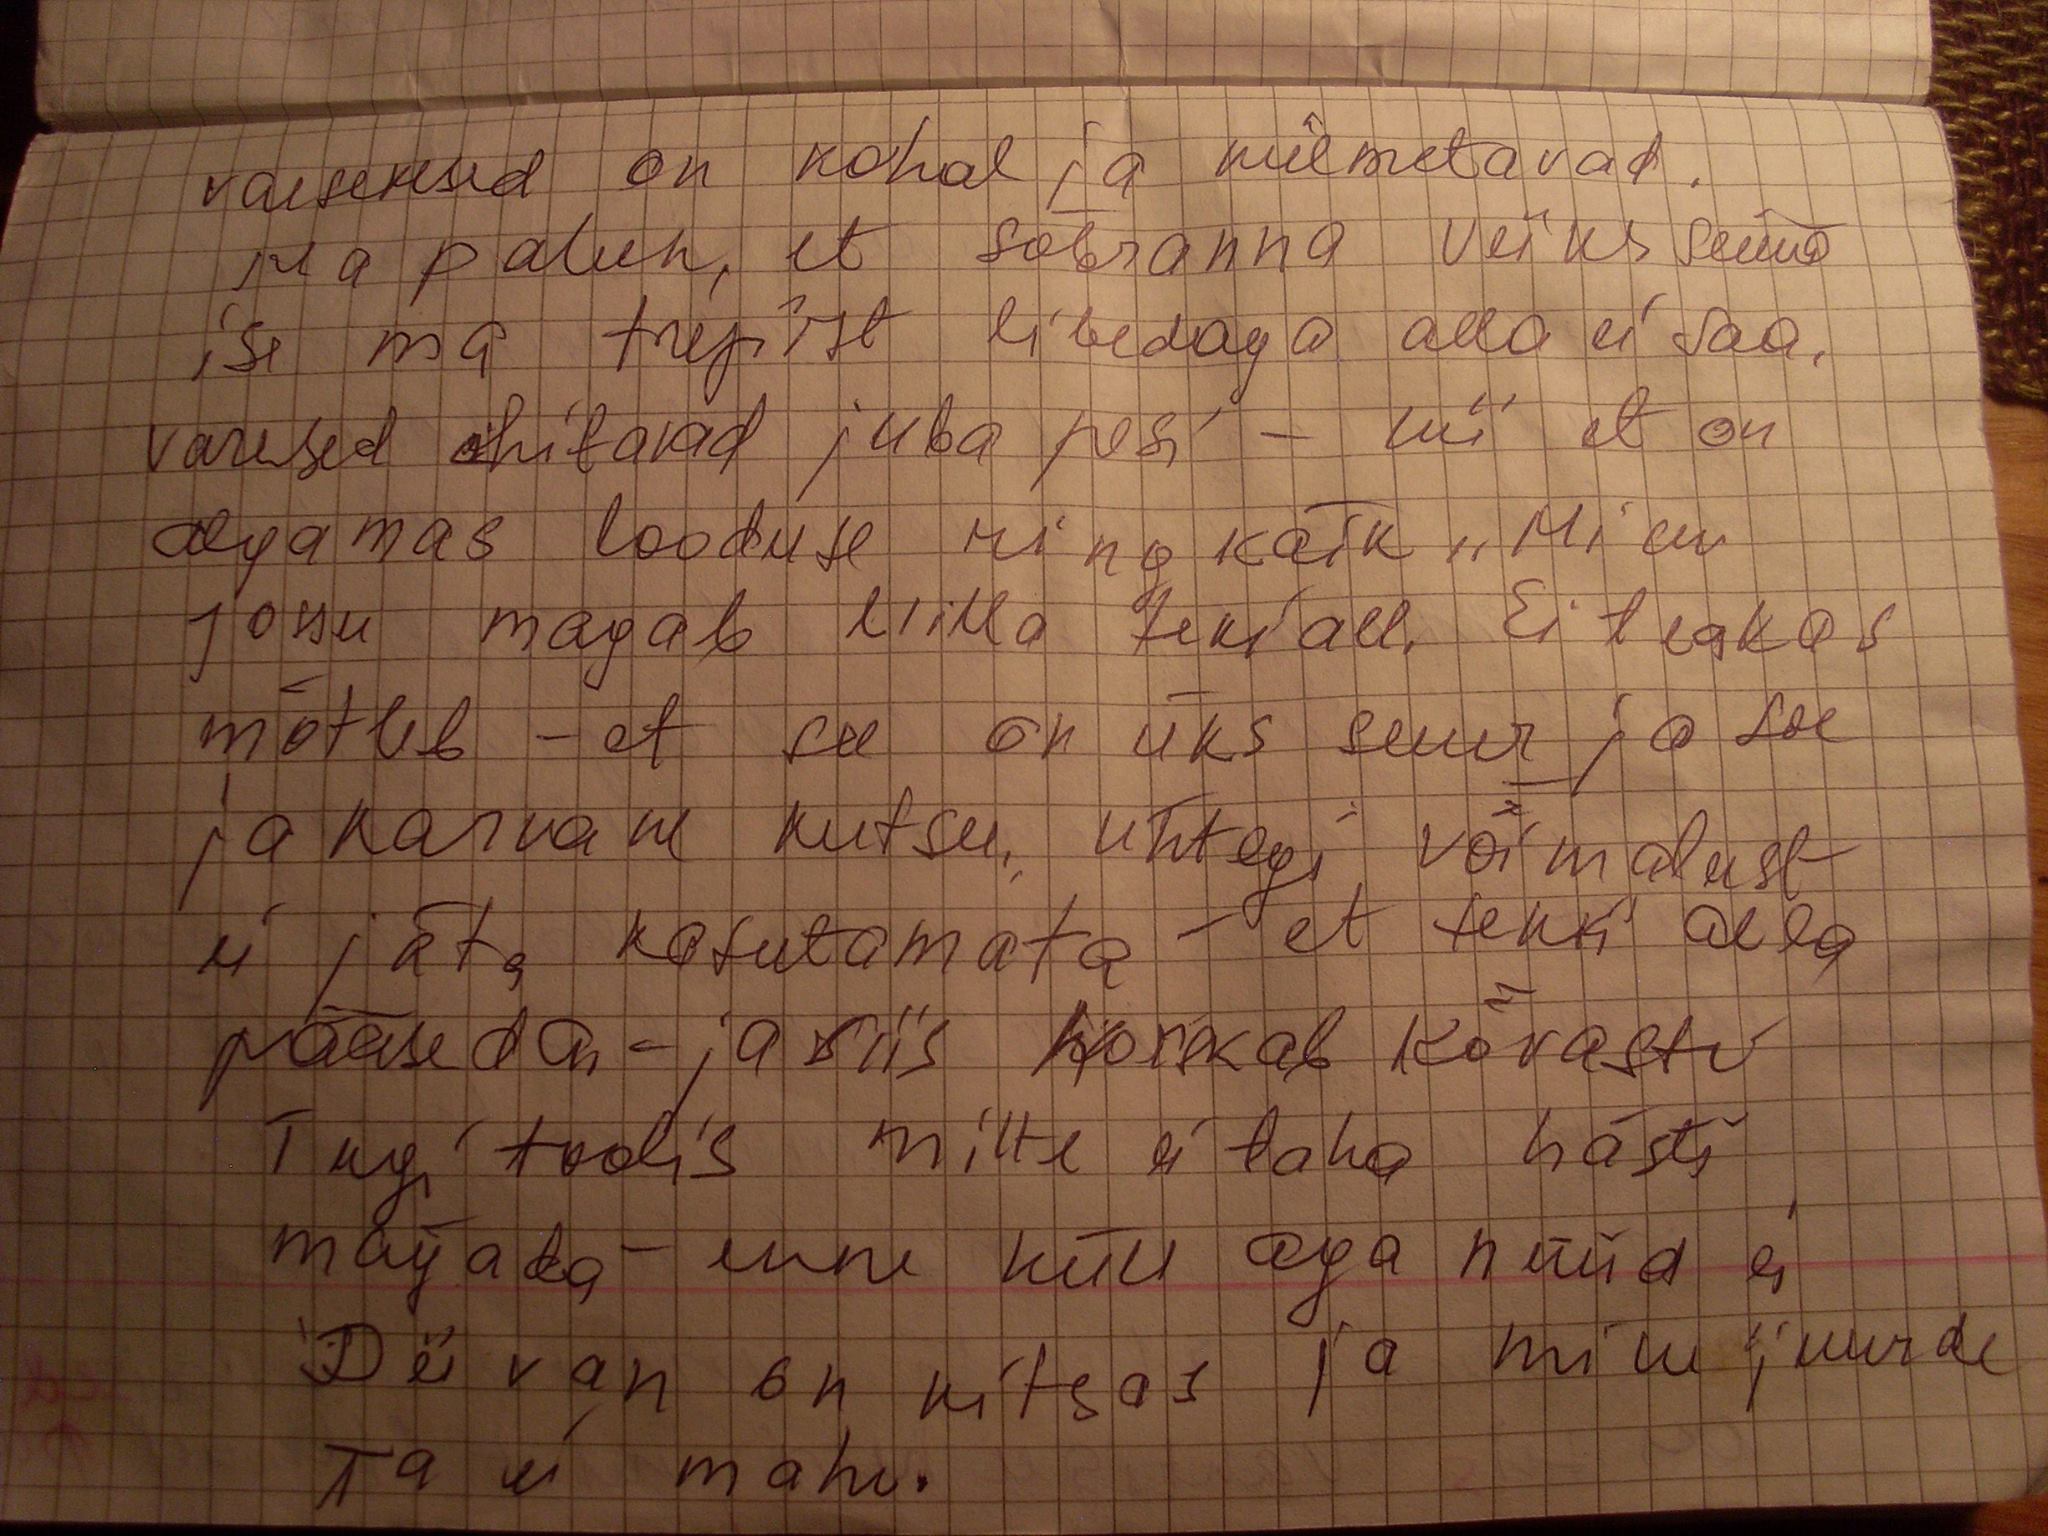 vaesekesed on kohal ja külmetavad.
Ma palun, et sõbranna viiks sinna
ise ma trepist libedaga alla ei saa.
varesed ehitavad juba pesi - nii et on
algamas looduse ringkäik „Minu
Jossu magab lilla teki all. Ei tea kas
mõtleb - et see on üks suur ja soe
ja karvane kutsu, ühtegi võimalust
ei jäta kasutamata - et tekki alla
pääseda - ja siis norskab kõvasti
Tugitoolis mitte ei taha hästi
magada - enne küll aga nüüd ei
Diivan on kitsas ja minu juurde
Ta ei mahu.